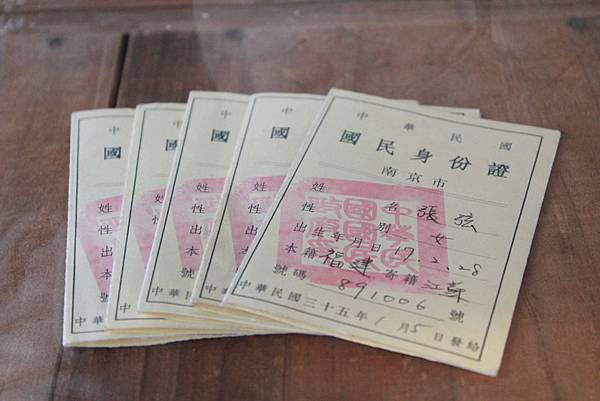 中華民國
國民身份證
南京市
姓名 張弦
性別 女
出生年月日 17.2.28
本籍 福建 寄籍 江蘇
號碼 891006 號
中華民國三十五年1月5日發給
中
國
姓
性
出
本
號
中華
中
國
姓
性
出
本
號
中華
中
國
姓
性
出
本
號
中華
中
國
姓
性
出
本
號
中華